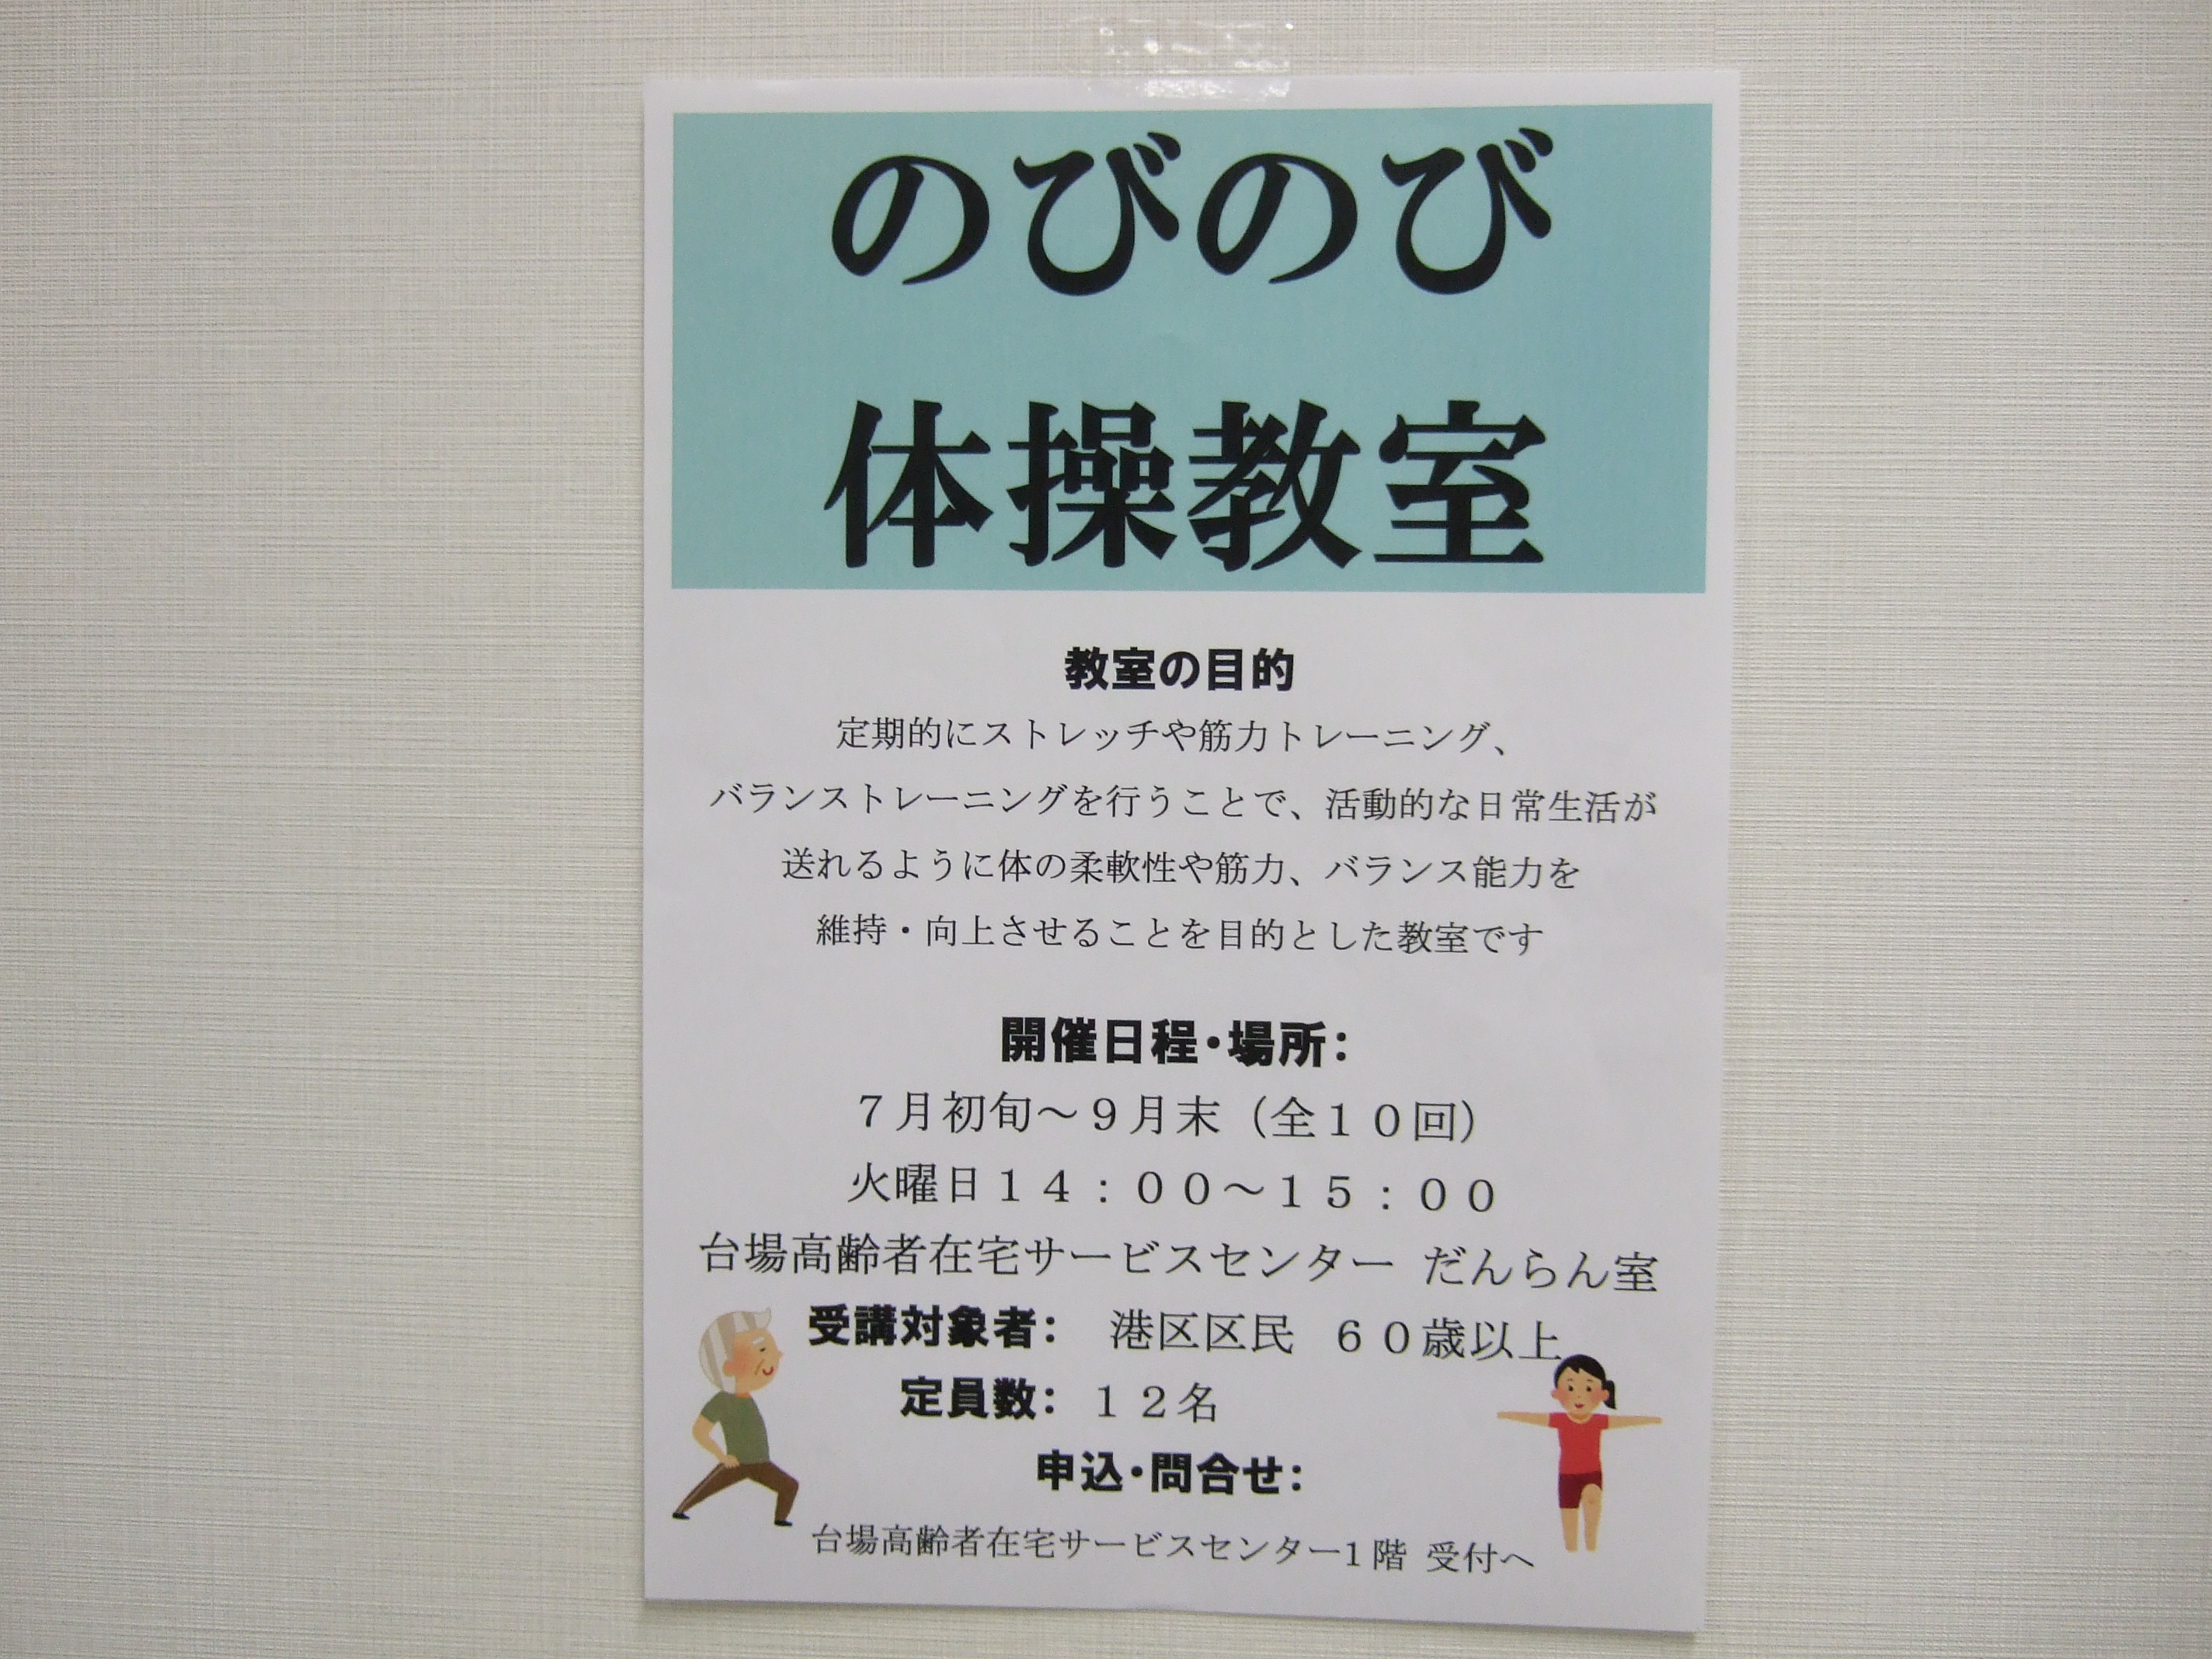 のびのび
体操教室
教室の目的
定期的にストレッチや筋力トレーニング、
バランストレーニングを行うことで、活動的な日常生活が
送れるように体の柔軟性や筋力、バランス能力を
維持・向上させることを目的とした教室です
開催日程・場所:
７月初旬～９月末（全１０回）
火曜日１４：００～１５：００
台場高齢者在宅サービスセンター だんらん室
受講対象者:　港区区民　６０歳以上
定員数: １２名
申込・問合せ:
台場高齢者在宅サービスセンター1 階 受付へ